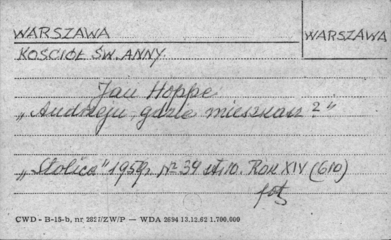 WARSZAWA
WARSZAWA
KOŚCIÓŁ ŚW. ANNY.
Jan Hoppe
„Andrzeju, gdzie mieszkasz?"
„Stolica" 1959r. Nr 34 str. 10. Rok XIV (610)
fot
CWD - B-15-b, nr 2827/ZW/P — WDA 2694 13.12.62 1.700.000